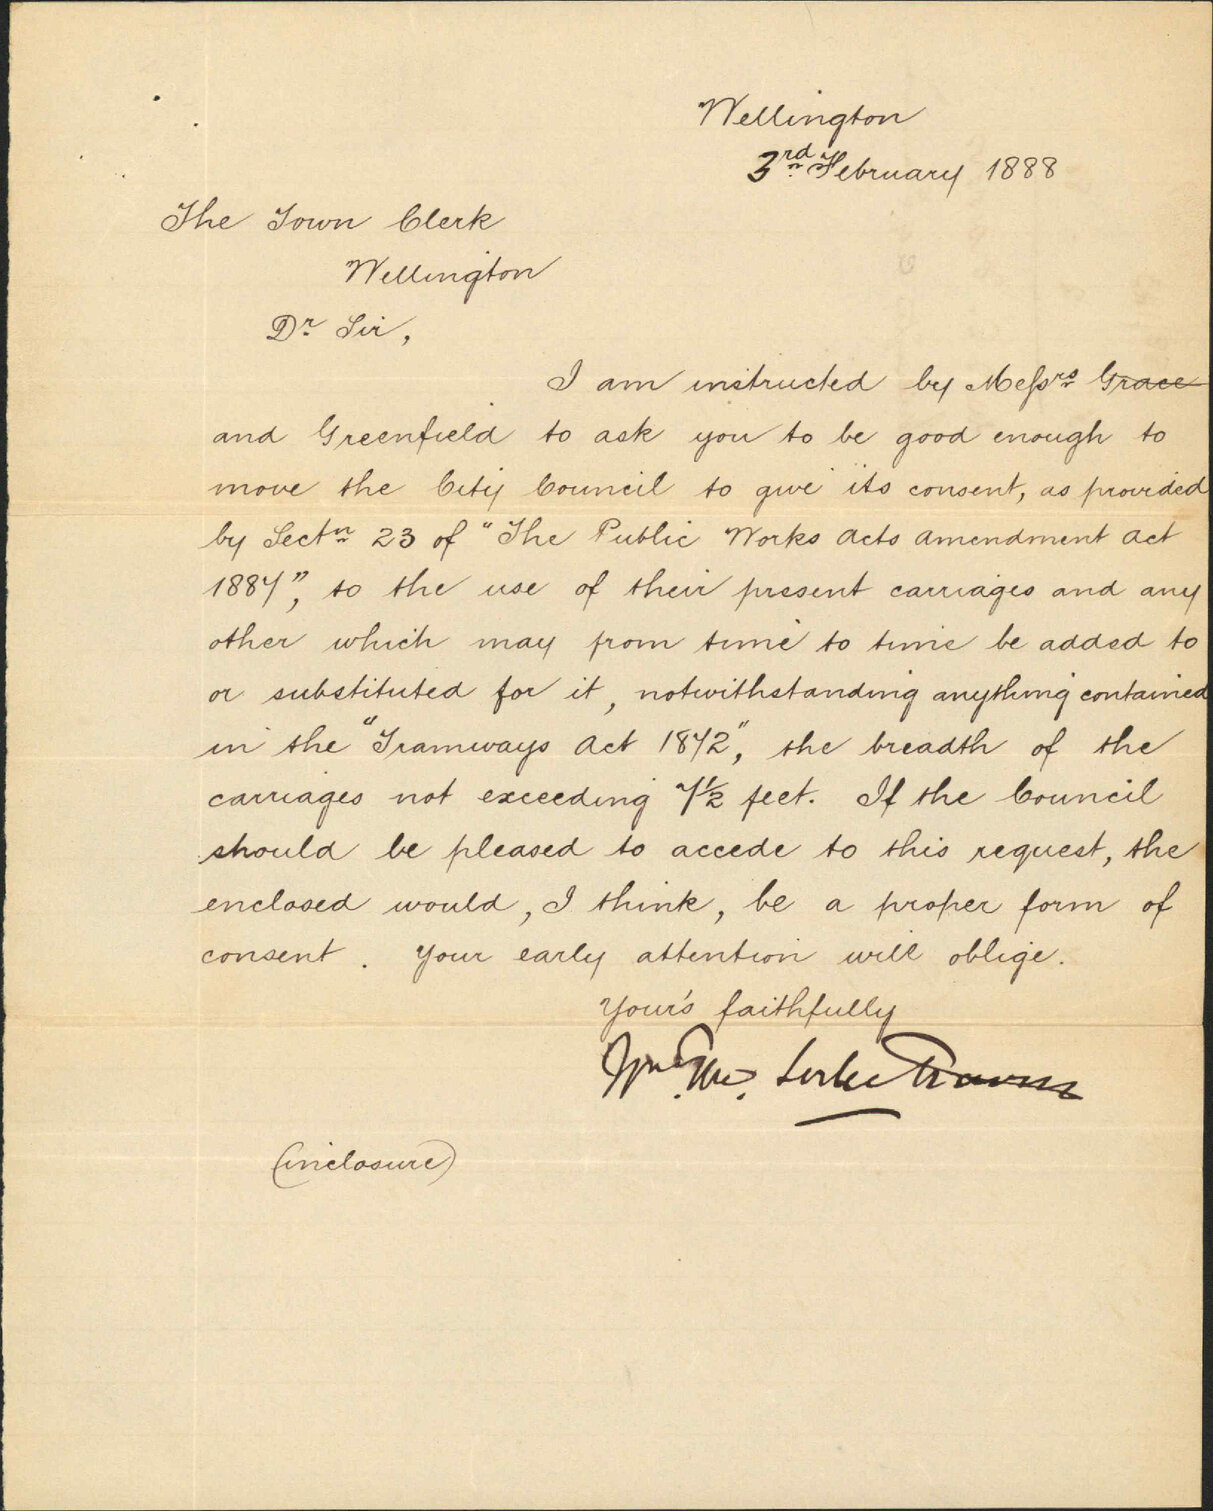 Wellington
3rd February 1888
The Town Clerk
Wellington
Dr Sir,
I am instructed by Messrs Grace
and Greenfield to ask you to be good enough to
move the City Council to give its consent, as provided
by Sectn 23 of "The Public Works Acts Amendment Act
1887", to the use of their present carriages and any
other which may from time to time be added to
or substituted for it, notwithstanding anything contained
in the "Tramways Act 1872", the breadth of the
carriages not exceeding 7½ feet. If the Council
should be pleased to accede to this request, the
enclosed would, I think, be a proper form of
consent. Your early attention will oblige.
Your's faithfully
Wm Thos. Locke Travers
(inclosure)